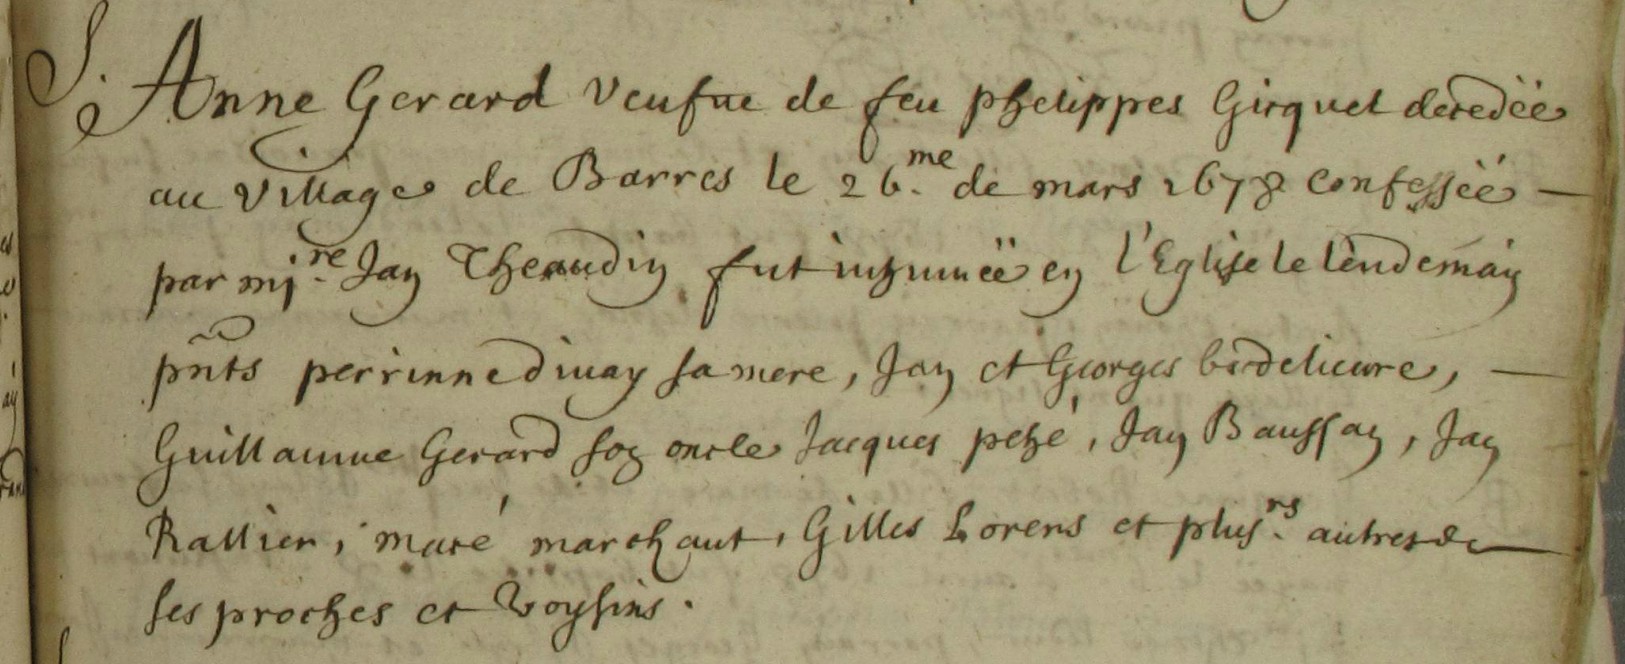 S. Anne Gerard veufue de feu phelippes Girquel decedëe
au village de Barres le 26.me de mars 1678 confessëe
par mire Jan Theaudin fut inhumëe en l'Eglise le lendemain
pnts perrinne divay sa mere, Jan et Georges bredelieure,
Guillaume Gerard son oncle Jacques pehé, Jan Baussan, Jan
Rallier, macé marchant, Gilles Lorens et plusrs autres de
ses proches et voysins.